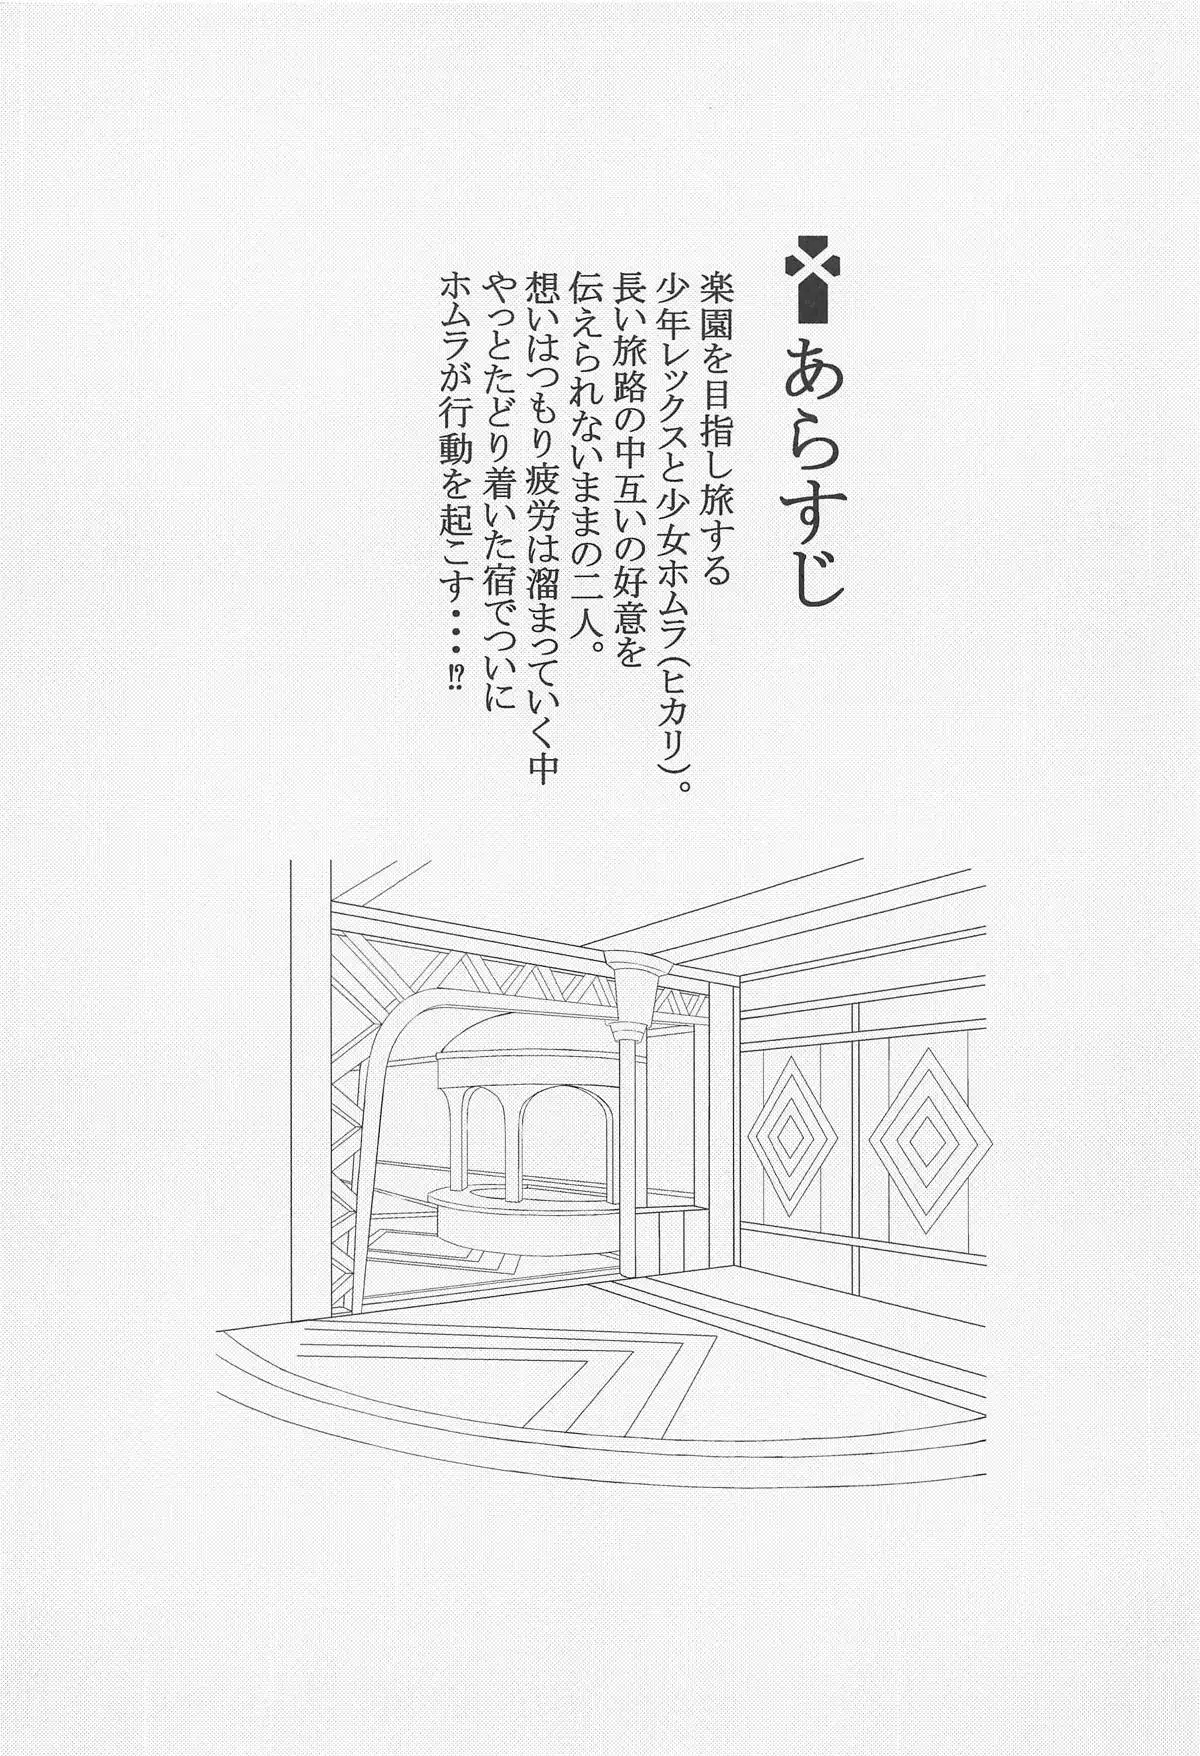 あらすじ
楽園を目指し旅する
少年レックスと少女ホムラ(ヒカリ)。
長い旅路の中互いの好意を
伝えられないままの二人。
想いはつもり疲労は溜まっていく中
やっとたどり着いた宿でついに
ホムラが行動を起こす・・・⁉